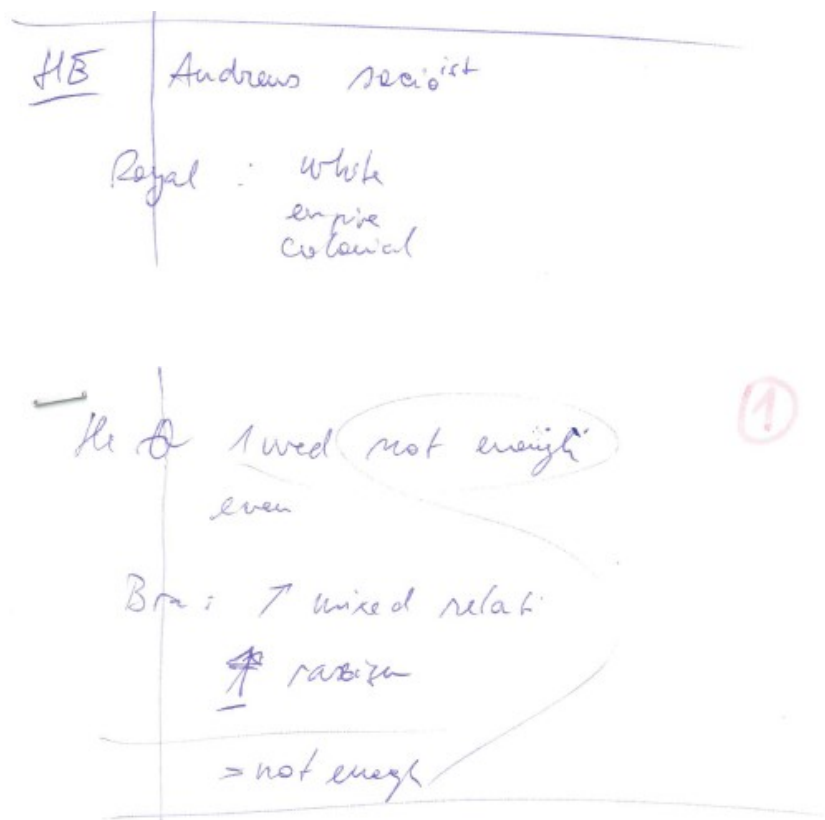 HE Andrews socioist
Royal : white
empire
colonial
①
He 1 wed not enough
even
Bra : ↑ mixed relati
↑ rassism
> not enough